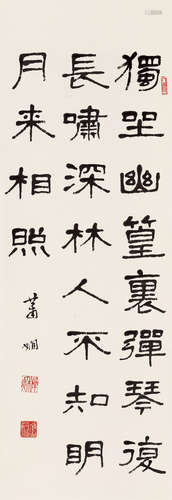 獨坐幽篁裏彈琴復
長嘯深林人不知明
月来相照
蕭嫻